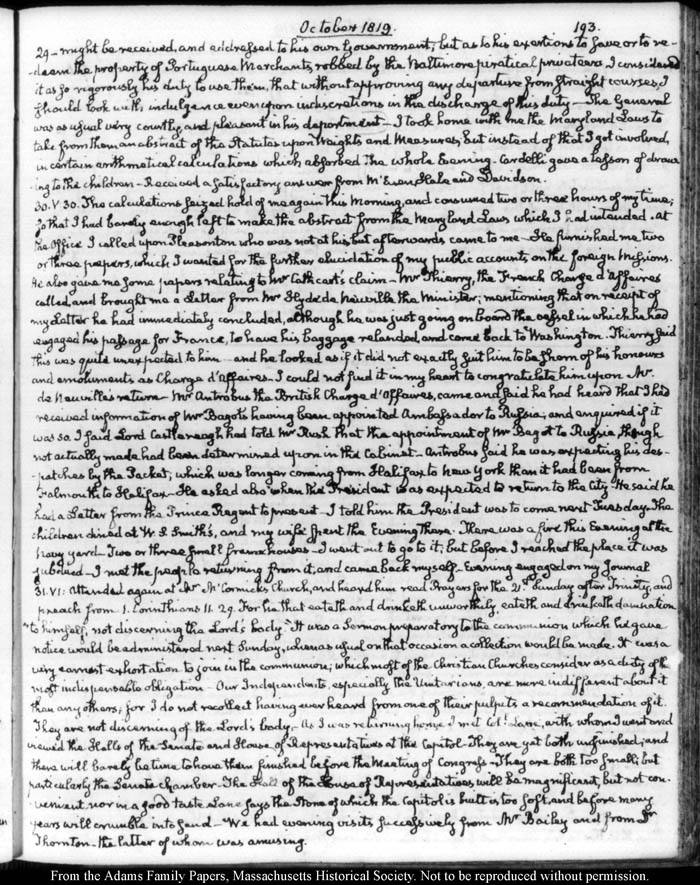 October 1819. 193.
29 - might be received, and addressed to his own Government; but as to his exertions to save or to re-
-deem the property of Portuguese Merchants, robbed by the Baltimore piratical privateers I considered
it as so rigorously his duty to use them, that without approving any departure from straight courses, I
should look with indulgence even upon indiscretions in the discharge of this duty - The General
was as usual very courtly, and pleasant in his deportment - I took home with me the Maryland Laws to
take from them an abstract of the Statutes upon Weights and Measures, but instead of that I got involved,
in certain arithmetical calculations which absorbed the whole Evening - Cardelli gave a lesson of draw-
ing to the children - Received a satisfactory answer from Mr Evan, Hale and Davidson.
30. V. 30. The calculations seized hold of me again this Morning, and consumed two or three hours of my time;
so that I had barely enough left to make the abstract from the Maryland Laws which I had intended. At
the Office I called upon Pleasonton who was not at his but afterwards came to me - He furnished me two
or three papers, which I wanted for the further elucidation of my public accounts, on the foreign Missions.
He also gave me some papers relating to Mr Cathcart's claim - Mr Thierry, the French Charge d'Affaires
called, and brought me a Letter from Mr Hyde de Neuville the Minister; mentioning that on receipt of
my Letter he had immediately concluded, although he was just going on board the vessel in which he had
engaged his passage for France, to have his baggage relanded, and come back to Washington. Thierry said
this was quite unexpected to him - and he looked as if it did not exactly suit him to be shorn of his honours
and emoluments as Charge d'Affaires. I could not find it in my heart to congratulate him upon Mr.
de Neuville's return - Mr Antrobus the British Charge d'Affaires, came and said he had heard that I had
received information of Mr Bagot's having been appointed Ambassador to Russia; and enquired if it
was so. I said Lord Castlereagh had told Mr Rush that the appointment of Mr Bagot to Russia though
not actually made had been determined upon in the Cabinet - Antrobus said he was expecting his des-
-patches by the Packet, which was longer coming from Halifax to New York than it had been from
Falmouth to Halifax - He asked also when the President was expected to return to the City. He said he
had a Letter from the Prince Regent to present - I told him the President was to come next Tuesday. The
children dined at W. S. Smith's, and my wife spent the Evening there. There was a fire this Evening at the
Navy yard - Two or three small frame houses - I went out to go to it; but before I reached the place it was
subdued - I met the people returning from it, and came back myself - Evening engaged on my Journal
31. VI: Attended again at Mr McCormick's Church, and heard him read Prayers for the 21st Sunday after Trinity, and
preach from 1. Corinthians 11. 29. For he that eateth and drinketh unworthily, eateth and drinketh damnation
"to himself, not discerning the Lord's body" It was a Sermon preparatory to the communion which he gave
notice would be administered next Sunday, when as usual on that occasion a collection would be made. It was a
very earnest exhortation to join in the communion; which most of the Christian Churches consider as a duty of the
most indispensable obligation - Our Independents, especially the Unitarians, are more indifferent about it
than any others; for I do not recollect having ever heard from one of their pulpits a recommendation of it.
They are not discerning of the Lord's body - As I was returning home I met Coll. Lane, with whom I went and
viewed the Halls of the Senate and House of Representatives at the Capitol - They are yet both unfinished; and
there will barely be time to have them finished before the Meeting of Congress - They are both too small; but
particularly the Senate Chamber - The Hall of the House of Representatives will be magnificent, but not con-
venient nor in a good taste Lane says the Stone of which the Capitol is built is too soft, and before many
years will crumble into sand - We had evening visits successively from Mr Bailey and from Dr
Thornton - the latter of whom was amusing.
From the Adams Family Papers, Massachusetts Historical Society. Not to be reproduced without permission.